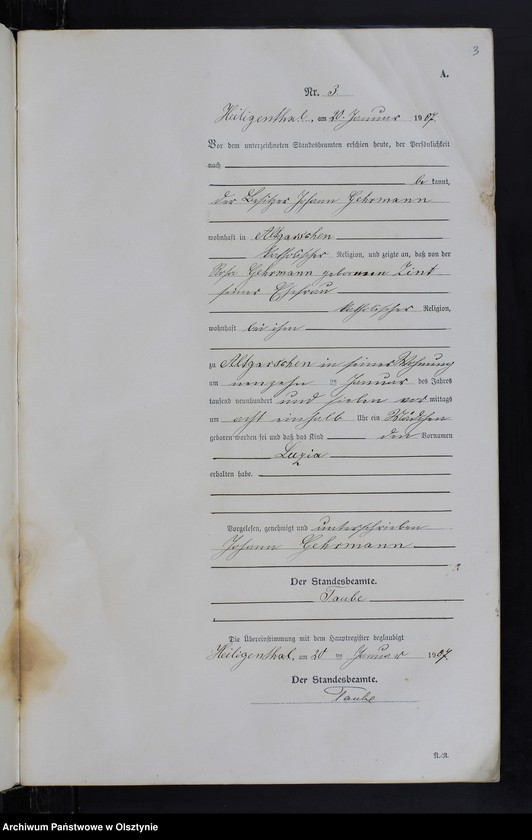 3
A.
Nr. 3.
Heiligenthal, am 20. Januar 1907.
Vor dem unterzeichneten Standesbeamten erschien heute, der Persönlichkeit
nach
be kannt,
der Besitzer Johann Gehrmann
wohnhaft in Altgarschen
katholischer Religion, und zeigte an, daß von der
Rosa Gehrmann geborenen Zint
seiner Ehefrau
katholischer Religion,
wohnhaft bei ihm
zu Altgarschen in seiner Wohnung
am neunzehn ten Januar des Jahres
tausend neunhundert und sieben vor mittags
um acht einhalb Uhr ein Mädchen
geboren worden sei und daß das Kind den Vornamen
Luzia
erhalten habe.
Vorgelesen, genehmigt und unterschrieben
Johann Gehrmann
Der Standesbeamte.
Taube
Die Übereinstimmung mit dem Hauptregister beglaubigt
Heiligenthal, am 20 ten Januar 1907.
Der Standesbeamte.
Taube
Archiwum Państwowe w Olsztynie